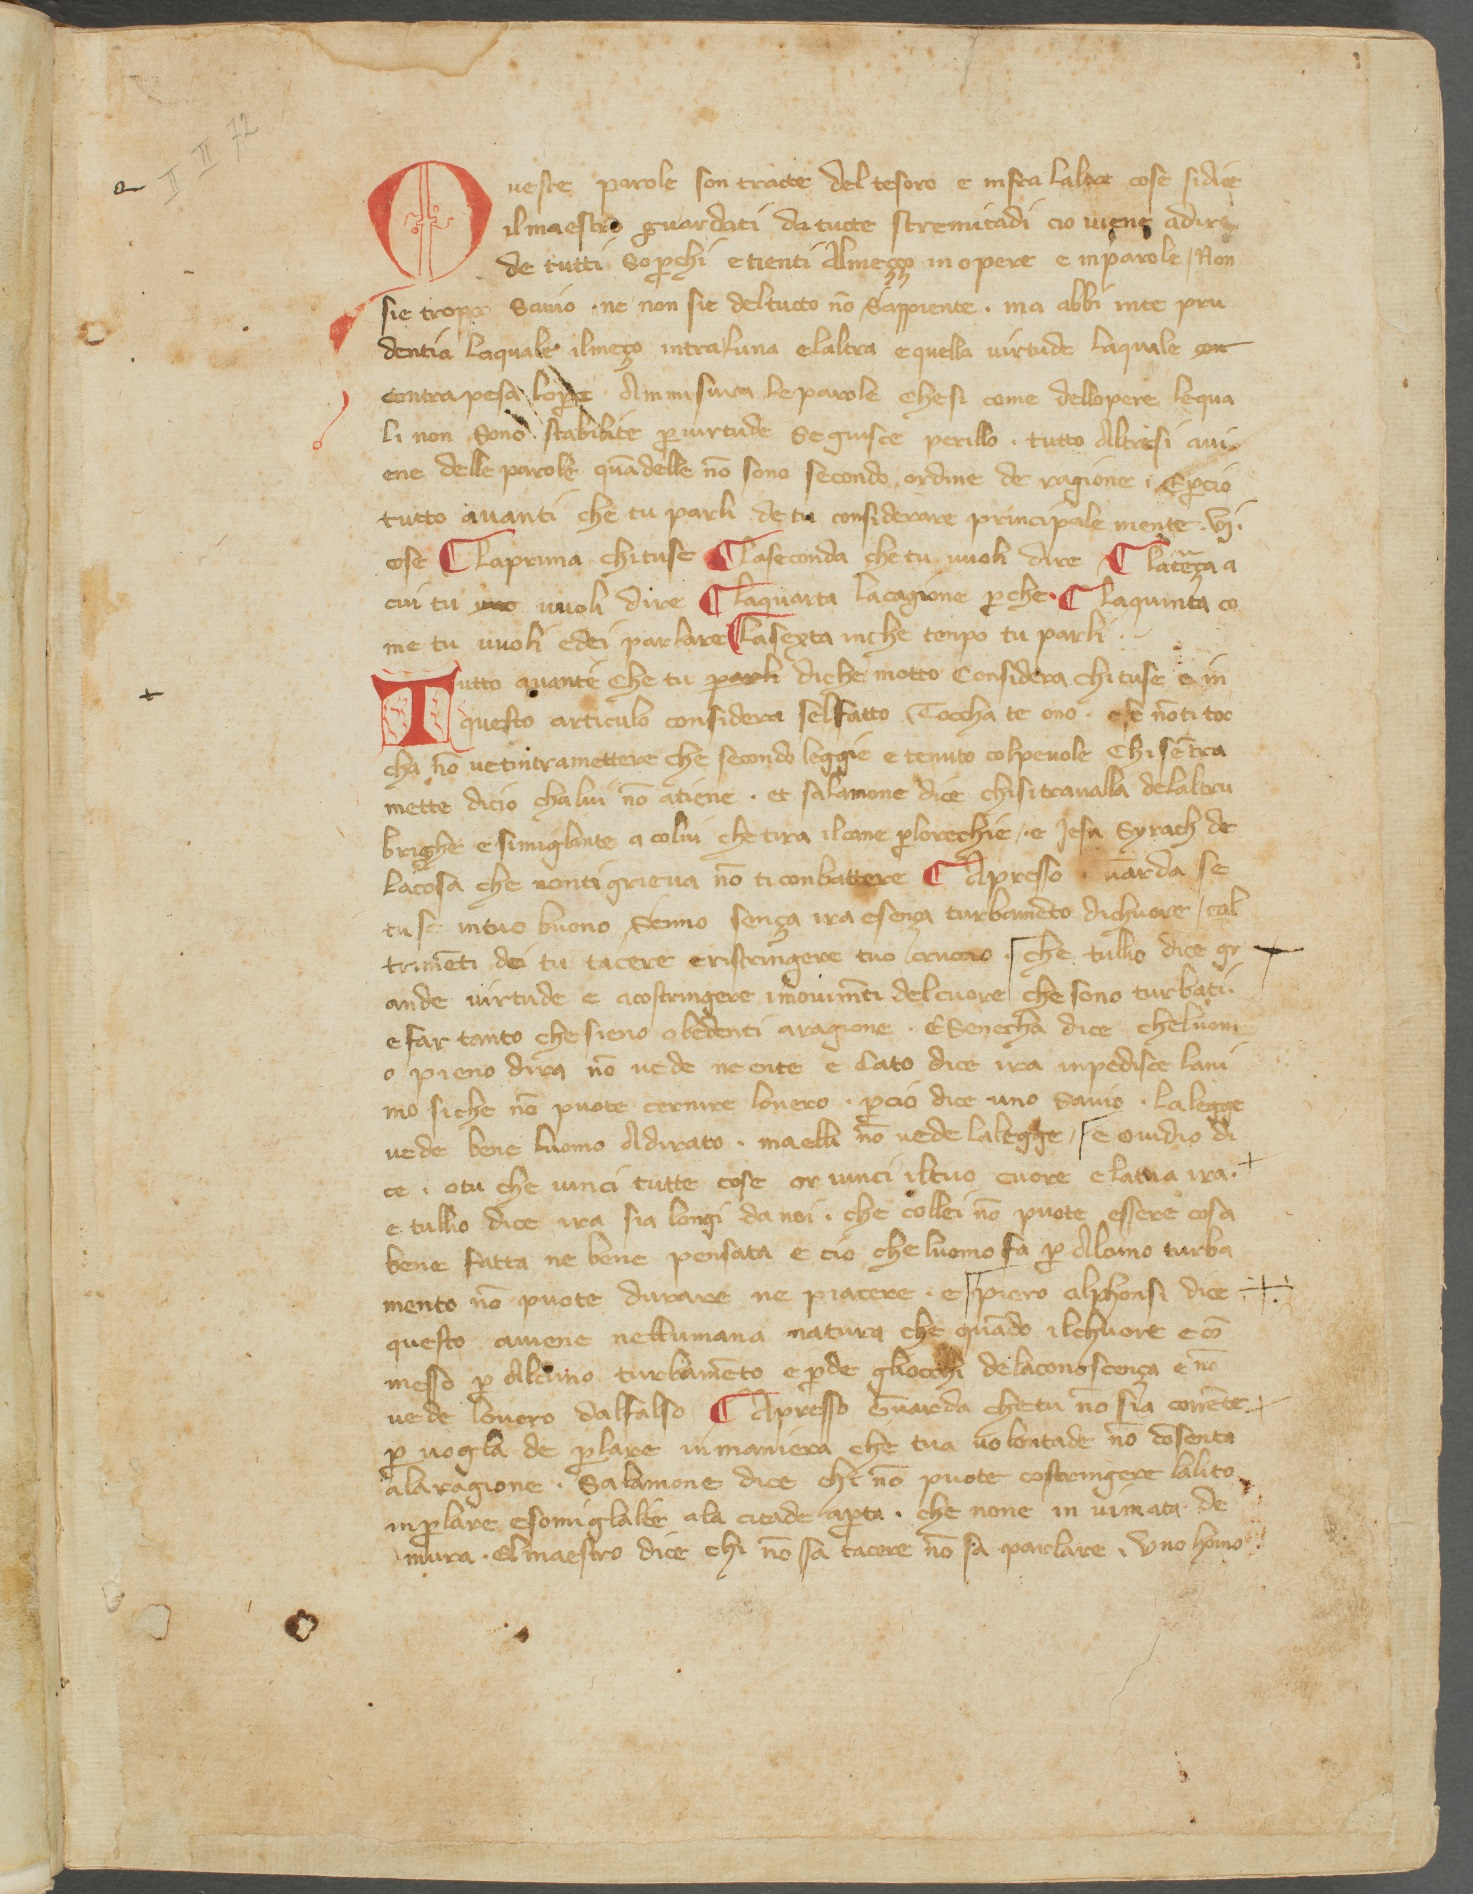 II II 72
Queste parole son tracte del tesoro e infra laltre cose si dice
il maestro guardati da tucte stremitadi cio viene adire
de tutti soperchi e tienti almeço in opere e inparole / Non
sie troppo savio . ne non sie deltucto nō sappiente . ma abbi inte pru
dentia laquale ilmeço intra luna elaltra e quella virtude laquale con
contrapesa lopere ammisura leparole chesi come dellopere lequa
li non sono stabilite p virtude seguisce perillo . tutto altresi avi
ene delle parole quādelle nō sono secondo ordine de ragione . Epcio
tutto avanti che tu parli de tu considerare principale mente . vj .
cose ¶ laprima chituse ¶ laseconda che tu vuoli dire ¶ laterça a
cui tu vuoli dire ¶ laquarta lacagione pche . ¶ laquinta co
me tu vuoli edei parlare ¶ lasexta inche tenpo tu parli .
Tutto avante che tu parli diche motto considera chi tuse e in
questo articulo considera selfatto toccha te ono . e se nōti toc
cha nō vetintramettere che secondo leggie e tenuto colpevole chi sētra
mette dicio chalui nō atiene . et salamone dice chisitravalla delaltru
brighe e simiglante a colui che tira ilcane plorechie / . e Jesu Syrach de
lacosa che nonti grieva nō ti conbattere ¶ Apresso guarda se
tu se intuo buono senno sença ira e sença turbamēto dichuore / eal
trimēti dei tu tacere eristringere tuo cruccio . che tullio dice gr
ande virtude e acostringere imovimēti delcuore che sono turbati .
e far tanto che sieno obedenti aragione . E Senecha dice cheluom
o pieno dira nō vede neente e Cato dice ira inpedisce lani
mo siche nō puote cernire lovero . pcio dice uno savio . la legge
vede bene luomo adirato . maelli nō vede lalegge / e ovidio di
ce . otu che vinci tutte cose or vinci iltuo cuore e latua ira .
e tullio dice ira sia longi da noi . che collei nō puote essere cosa
bene fatta ne bene pensata e cio che luomo fa p alcuno turba
mento nō puote durare ne piacere . e piero alphonsi dice
questo aviene nellumana natura che quādo ilchuore e cō
messo p alcuno turbamēto e pde gliocchi delaconoscença e nō
vede lovero dalfalso ¶ Apresso guarda chetu nō sia corrēte
p vogla de plare inmaniera che tua volontade nō cōsenta
alaragione . Salamone dice chi nō puote costringere lalito
inplare e somiglable ala citade apta . che none in vimata de
mura . elmaestro dice chi nō sa tacere nō sa parlare . Uno homo